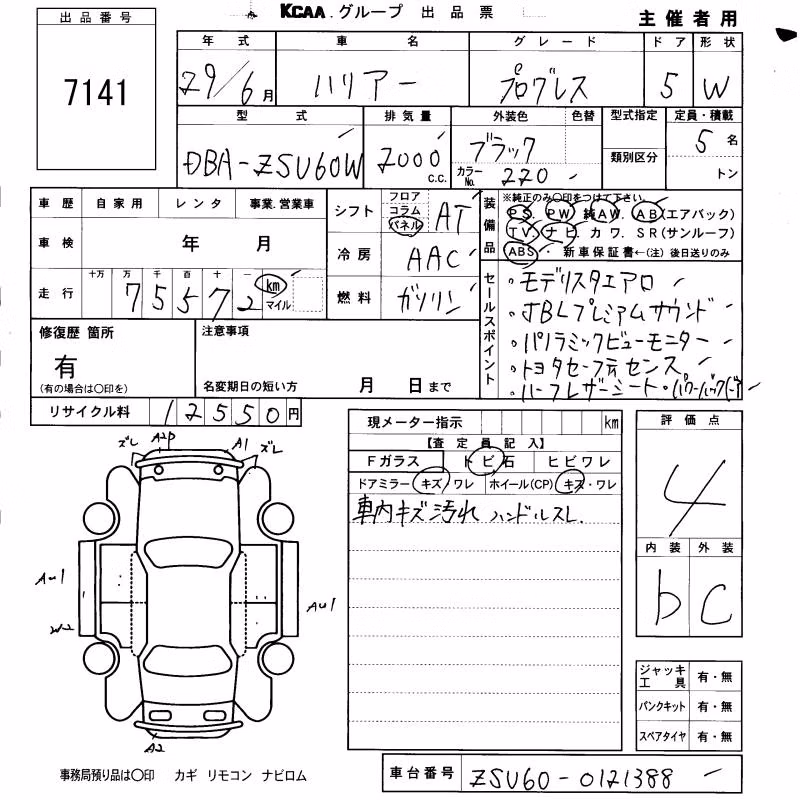 KCAA グループ 出品票
主催者用
出品番号
7141
年式 車名 グレード ドア 形状
29/6月 ハリアー プログレス 5 W
型式 排気量 外装色 色替 型式指定 定員・積載
DBA-ZSU60W 2000 c.c. ブラック 5名
カラーNo. 220 類別区分 トン
車歴 自家用 レンタ 事業.営業車
シフト フロア コラム パネル AT
装備品
※純正のみ○印をつけて下さい。
PS. PW 純AW. AB(エアバック)
TV ナビ カワ. SR(サンルーフ)
ABS・新車保証書←(注)後日送りのみ
車検 年 月
冷房 AAC
走行 十万 万 千 百 十 一
75572 km マイル
燃料 ガソリン
セールスポイント
・モデリスタエアロ
・JBLプレミアムサウンド
・パノラミックビューモニター
・トヨタセーフティセンス
・ハーフレザーシート・パワーバックドア
修復歴 箇所
有
(有の場合は○印を)
注意事項
名変期日の短い方 月 日まで
リサイクル料 12550円
現メーター指示 km
【査定員記入】
Fガラス トビ石 ヒビワレ
ドアミラー キズ/ワレ ホイール(CP) キズ・ワレ
車内キズ汚れ ハンドルスレ
評価点
4
内装 外装
b C
ズレ A2P A1 ズレ
AU1
W2
AU1
A2
ジャッキ工具 有・無
パンクキット 有・無
スペアタイヤ 有・無
事務局預り品は○印 カギ リモコン ナビロム
車台番号 ZSU60-0121388